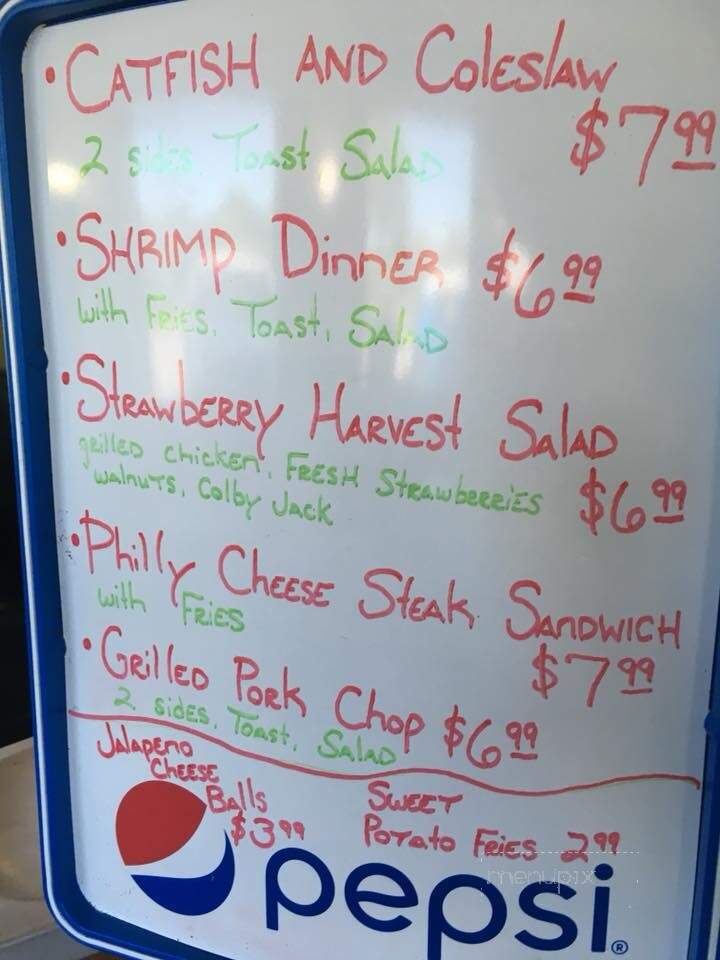 • CATFISH AND ColeslAW
$7.99
2 sides, Toast Salad
• SHRIMP DinnER $6.99
with FRIES, TOAST, SALAD
• STRAWBERRY HARVESt SALAD
grillED chicken, FRESH STRAWberRiES $6.99
walnuTS, Colby JACK
• Philly CHEESE STEAK SANDWICH
with FRIES
$7.99
• GRillED PORK Chop $6.99
2 sidES, TOAST, SALAD
JALAPENO
CHEESE
BAlls
$3.99
SWEET
POTATO FRIES 2.99
pepsi®
menupix